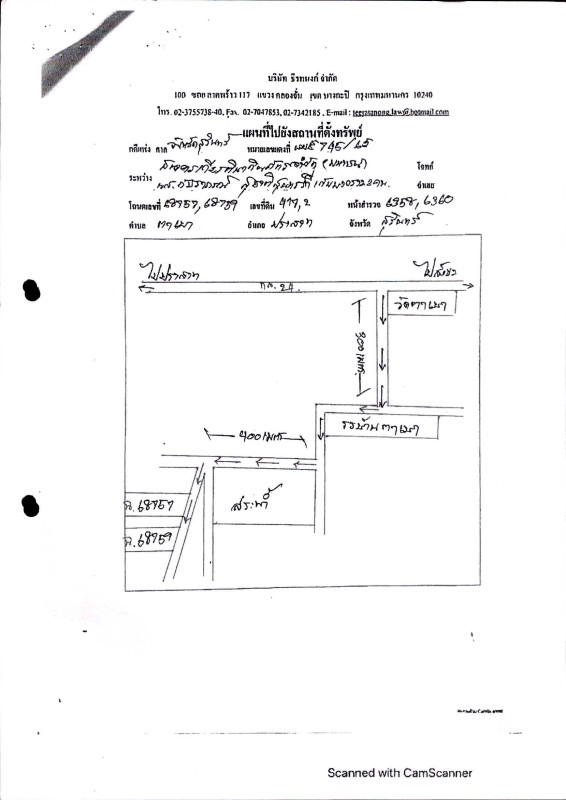 บริษัท ธีรทนงก์ จำกัด
100 ซอย ลาดพร้าว 117 แขวง คลองจั่น เขต บางกะปิ กรุงเทพมหานคร 10240
โทร. 02-3755738-40, Fax. 02-7047853, 02-7342185 , E-mail : teerasanong.law@hotmail.com
แผนที่ไปยังสถานที่ตั้งทรัพย์
คดีแห่ง ศาล จังหวัดสุรินทร์ หมายเลขแดงที่ 745/65
(มหาชน) โจทก์
ระหว่าง
จำเลย
โฉนดเลขที่ 68757, 68759 เลขที่ดิน 417, 2 หน้าสำรวจ 6358, 6360
ตำบล ตาเบา อำเภอ ปราสาท จังหวัด สุรินทร์
ไปปราสาท
ไปสังขะ
ทล. 24
วัดตาเบา
300 เมตร
รร บ้านตาเบา
400 เมตร
ฉ.68757
สระน้ำ
ฉ.68759
Scanned with CamScanner